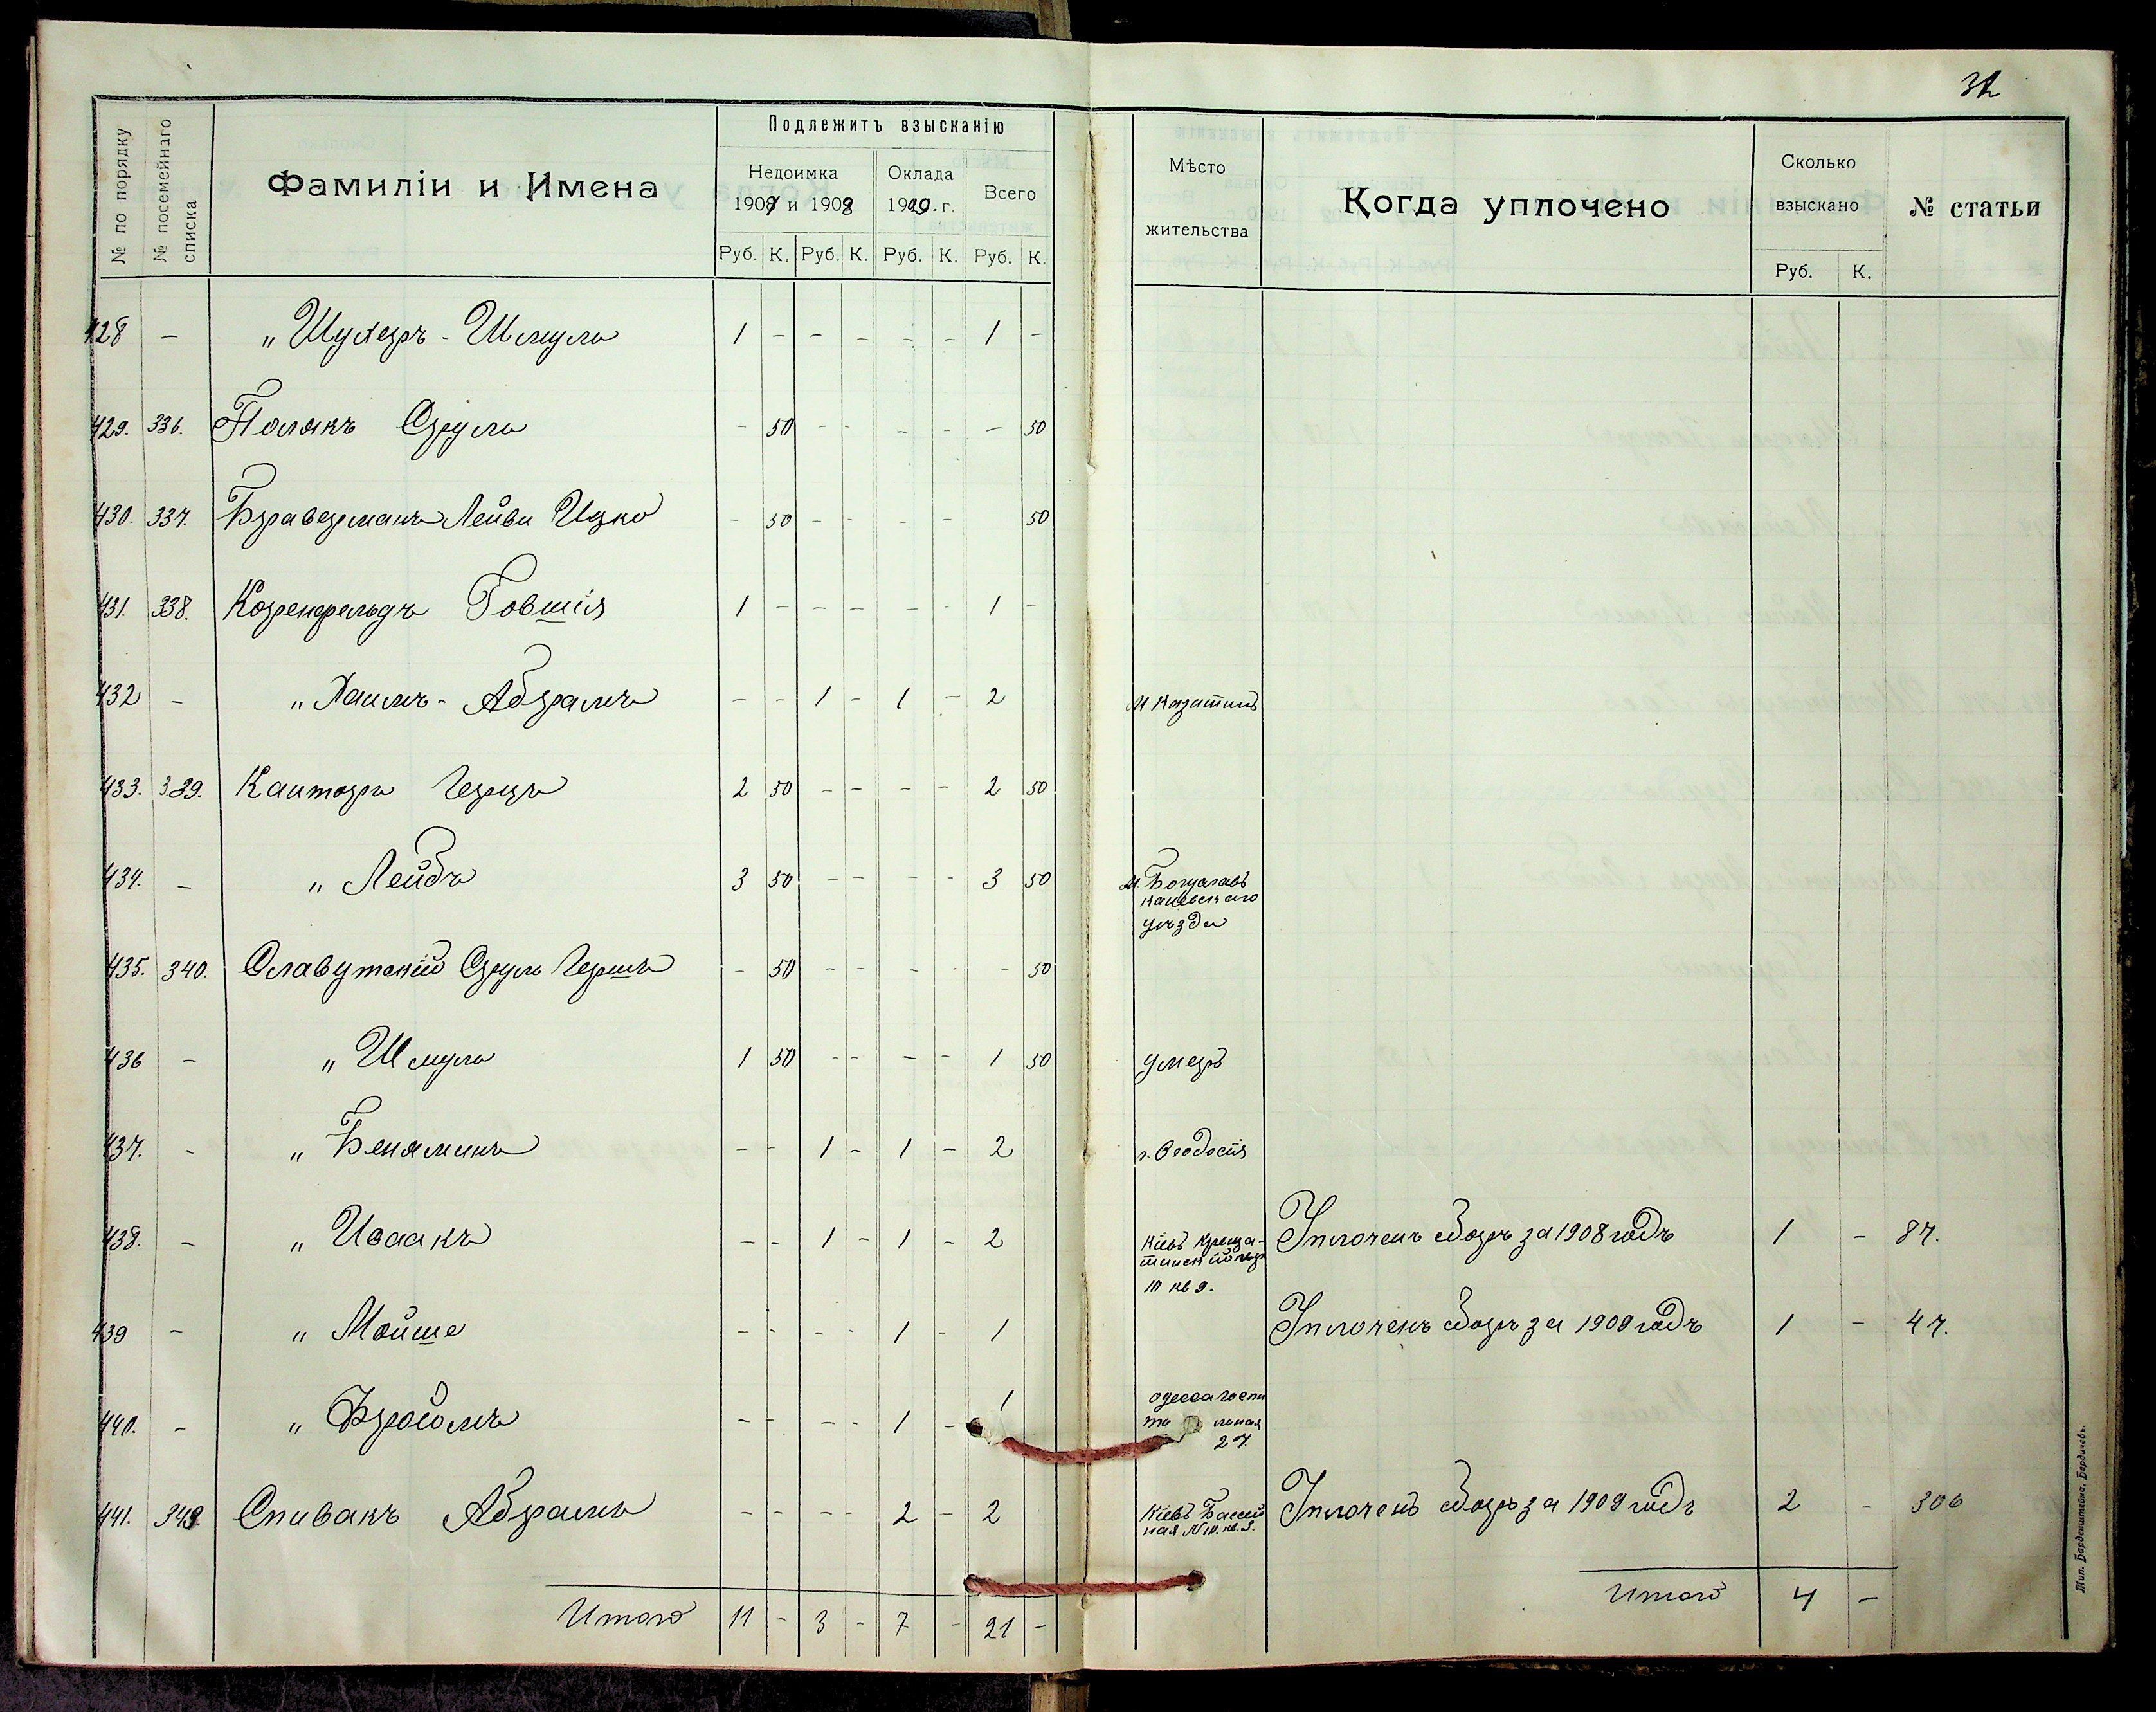 32
№ по порядку
№ посемейнаго списка
Фамиліи и Имена
Подлежитъ взысканію
Недоимка 1907 и 1908
Оклада 1909 г.
Всего
Руб. К. Руб. К. Руб. К. Руб. К.
Мѣсто жительства
Когда уплочено
Сколько взыскано
Руб. К.
№ статьи
428 - " Шулеръ - Шмуль 1 - - - - - 1 -
429. 336. Полякъ Сруль - 50 - - - - - 50
430. 337. Браверманъ Лейви Ицко - 50 - - - - 50
431. 338. Коренфельдъ Говшія 1 - - - - - 1 -
432 - " Хаимъ - Абрамъ - - 1 - 1 - 2 м Казатинъ
433. 339. Канторъ Герцъ 2 50 - - - - 2 50
434. - " Лейбъ 3 50 - - - - 3 50 м. Богуславъ
каневскаго
уѣзда
435. 340. Славутскій Сруль Гершъ - 50 - - - - - 50
436 - " Шмуль 1 50 - - - - 1 50 умеръ
437. - " Беняминъ - - 1 - 1 - 2 г. Ѳеодосія
438. - " Исаакъ - - 1 - 1 - 2 Кіевъ Креща-
10 кв 9.
Уплоченъ сборъ за 1908 годъ 1 - 87.
439 - " Мойше - - - - 1 - 1 Уплоченъ сборъ за 1909 годъ 1 - 47.
440. - " Фройомъ - - - - 1 - 1 одесса Госпи
та льная
27.
441. 349. Спивакъ Абрамъ - - - - 2 - 2 Кіевъ Бассей
ная № 10. кв. 5.
Уплоченъ сборъ за 1909 годъ 2 - 306
Итого 11 - 3 - 7 - 21 -
Итого 4 -
Тип. Барденштейна, Бердичевъ.